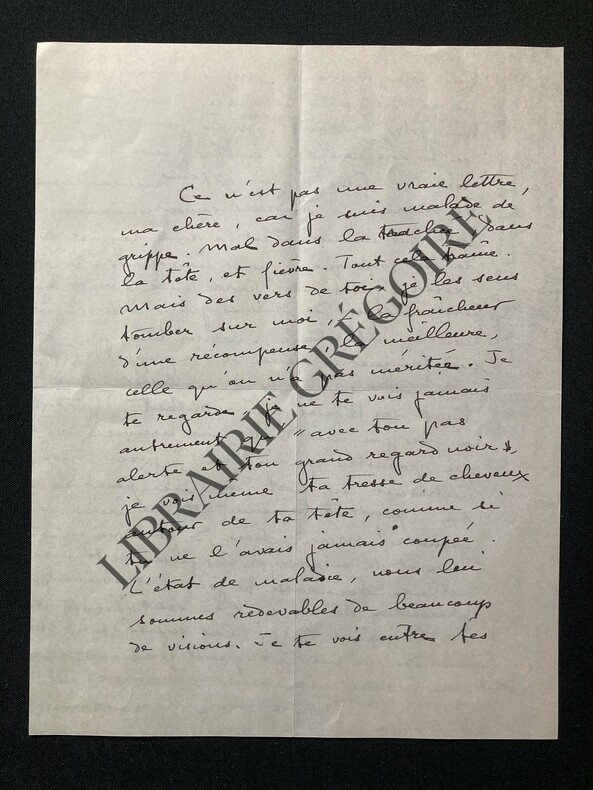 Ce n'est pas une vraie lettre,
ma chère, car je suis malade de
grippe. Mal dans la trachée, dans
la tête, et fièvre. Tout cela traîne.
Mais des vers de toi, je les sens
tomber sur moi, la fraîcheur
d'une récompense, la meilleure,
celle qu'on n'a pas méritée. Je
te regarde "je ne te vois jamais
autrement que" avec ton pas
alerte et ton grand regard noir,
je vois même ta tresse de cheveux
autour de ta tête, comme si
tu ne l'avais jamais coupée.
L'état de maladie, nous lui
sommes redevables de beaucoup
de visions. Je te vois entre tes
LIBRAIRIE GRÉGOIRE